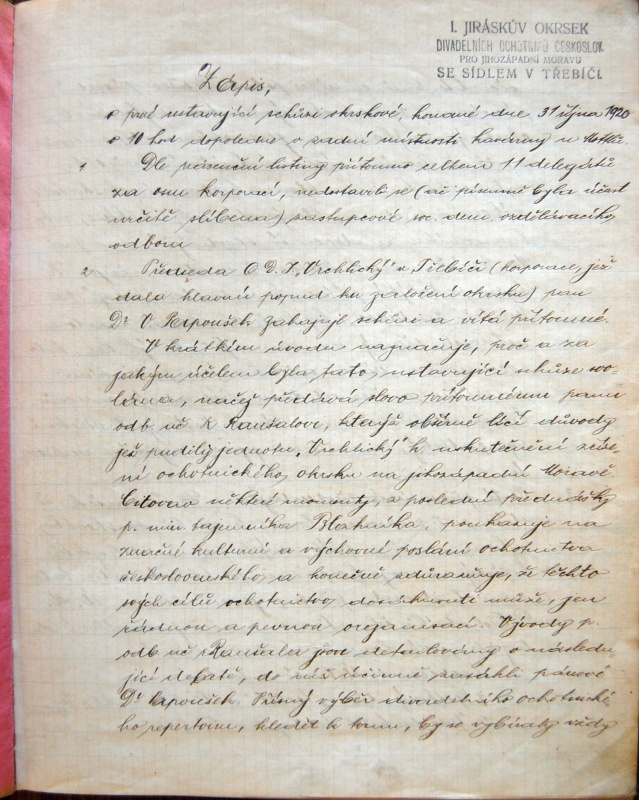 I. JIRÁSKŮV OKRSEK
DIVADELNÍCH OCHOTNÍKŮ ČESKOSLOV.
PRO JIHOZÁPADNÍ MORAVU
SE SÍDLEM V TŘEBÍČI.
Zápis,
o prvé ustavující schůzi okrskové, konané dne 31 října 1920
o 10 hod dopoledne v zadní místnosti kavárny u
1 Dle presenční listiny přítomno celkem 11 delegátů
za osm korporací, nedostavili se (ač písemně byla účast
určitě slíbena) zástupcové soc. dem. vzdělávacího
odboru
2 Předseda O.D.J. „Vrchlický" v Třebíči (korporace, jež
dala hlavní popud ku založení okrsku) pan
Dr V. zahajuje schůzi a vítá přítomné.
V krátkém úvodu naznačuje, proč a za
jakým účelem byla tato ustavující schůze svo-
lána, načež předává slovo přítomnému panu
odb. uč. R Ranšalovi, kterýž obšírně líčí důvody
jež pudily jednotu „Vrchlický" k uskutečnění zříze-
ní ochotnického okrsku na jihozápadní Moravě.
Citováno některé momenty, z poslední přednášky
p. min tajemníka poukazuje na
značné kulturní a výchovné poslání ochotnictva
československého, a konečně zdůrazňuje, že těchto
svých cílů ochotnictvo dosáhnouti může, jen
řádnou a pevnou organisací. Vývody p.
odb. uč Ranšala jsou detailovány v násled-
jící debatě, do níž účinně zasáhli pánové
Dr Přísný výběr divadelního ochotnické-
ho repertoiru, hleděti k tomu, by se vybíraly vždy